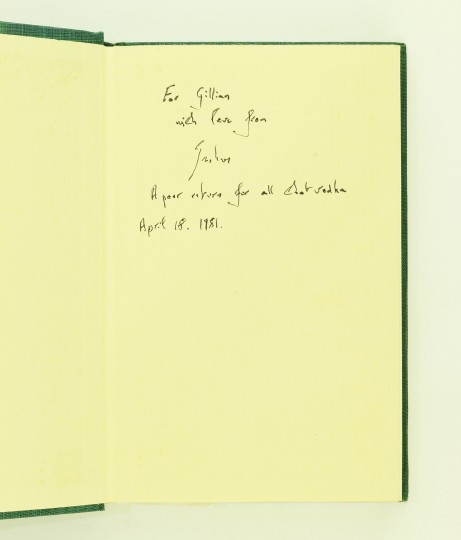 For Gillian
with love from
A poor return for all that vodka
April 18. 1981.